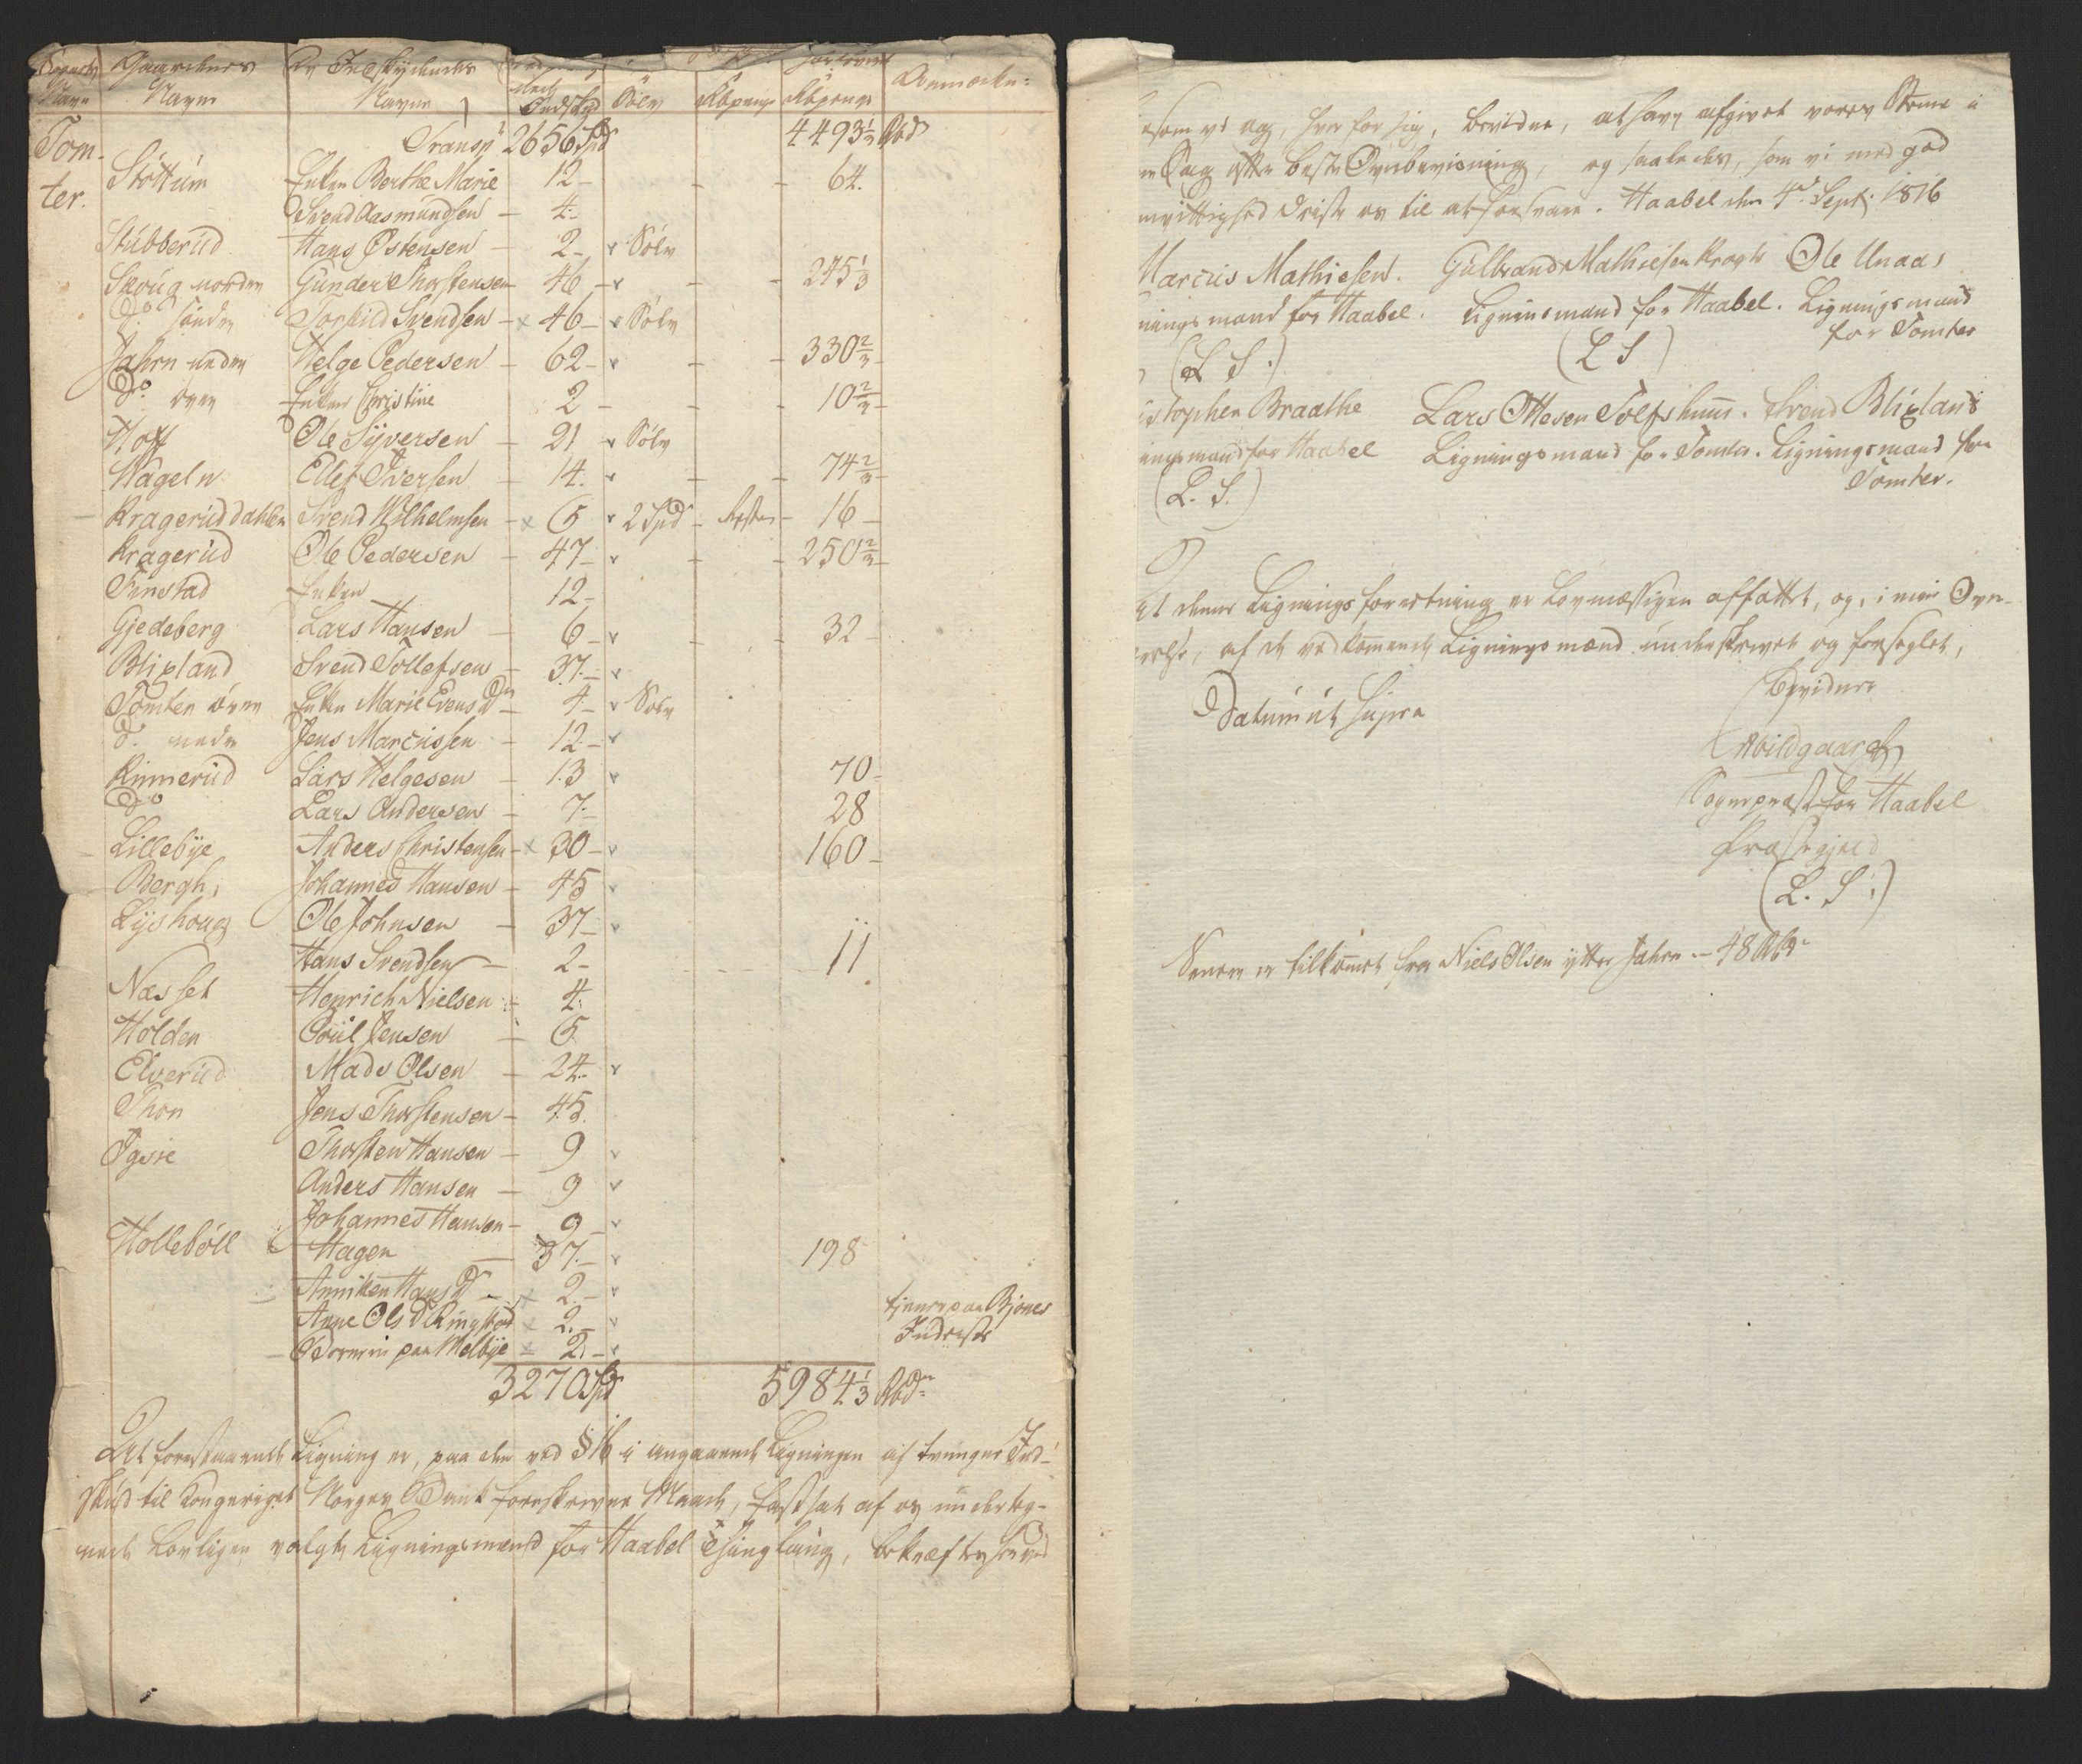 Gaardenes Navn De Indskydendes Navne Indskud Sølv Rbpenge Rbpenge Anmærkn:
Tomter. Transp 2656 Spd 4493 1/3 Rbd
Støttum Enken Berthe Marie 12 - 64.
Svend Aasmundsen - 4 -
Stubberud Hans Østensen - 2 - v Sølv
Skoug nordre Gunder Thorstensen 46 - v 245 1/3
do søndre Torkild Svendsen - x 46 - v Sølv
Jahren nedre Helge Pedersen - 62 - v 330 2/3
do øvre Enken Christine 2 - 10 2/3
Hoff Ole Syversen - 21 v Sølv
Hageln Ellef Iversen - 14. v 74 2/3
Krageruddahlen Svend Wilhelmsen - x 5 v 2 Spd - Resten - 16 -
Kragerud Ole Pedersen - 47 - v 250 2/3
Finstad Enken 12 -
Gjedeberg Lars Hansen - 6 - v 32 -
Blixland Svend Tollefsen - 37. - v
Tomter øvre Enken Marie Evens D - 4 - v Sølv
do nedre Jens Marcussen - 12 - v
Rimmerud Lars Helgesen - 13 v 70 -
do Lars Andersen - 7 - 28
Lillebye Anders Christensen - x 30 - v 160 -
Bergh, Johannes Hansen - 45 v
Lyshoug Ole Johnsen - 37 - v
Hans Svendsen - 2 - 11
Næsset Henrich Nielsen - 4.
Holden Poul Jensen - 5
Elverud Mads Olsen - 24 - v
Thon Jens Thorstensen - 45.
Ignie Thorsten Hansen - 9 v
Anders Hansen - 9 v
Johannes Hansen - 9 - v
Hollebøll Hagen - 37. - v 198
Anniken Hans D - x 2. - v
Anne Ols D Ringstad x 2. - v tjener paa Bjones Inderste
paa Melbye - x 2. - v
3270 Spd 5984 1/3 Rbd
At forestaaende Ligning er, paa den ved § 16 i angaaende Ligningen af tvungne Ind-
skud til Kongeriget Norges Bank foreskrevne Maade, fastsat af os underteg-
nede Lovligen valgte Ligningsmænd for Haabel Thinglaug, bekræftes herved
som vi og, hver for sig, bevidne, at have afgivet vores Stemme i
Sag efter beste Overbeviisning, og saaledes, som vi med god
mvittighed driste os til at forsvare. Haabel den 4d Septr 1816
Marcus Mathiesen. Gulbrand Mathiesen Kragh Ole Unaas
nings mand for Haabel. Ligningsmand for Haabel. Ligningsmand
for Tomter
(L S.) (L S)
istopher Braathe Lars Ottesen Tolfshuus. Svend Blixland
ningsmand for Haabel Ligningsmand for Tomter. Ligningsmand for
Tomter.
(L. S.)
At denne Ligningsforretning er Lovmæssigen affattet, og, i min Over-
værelse, af de vedkommende Ligningsmænd underskrevet og forseglet,
bevidner
Datum ut supra
Abildgaard
Sogneprest for Haabel
Præstegjeld
(L. S.)
Senere er tilkommet fra Niels Olsen ytter Jahren - 48 Rbd